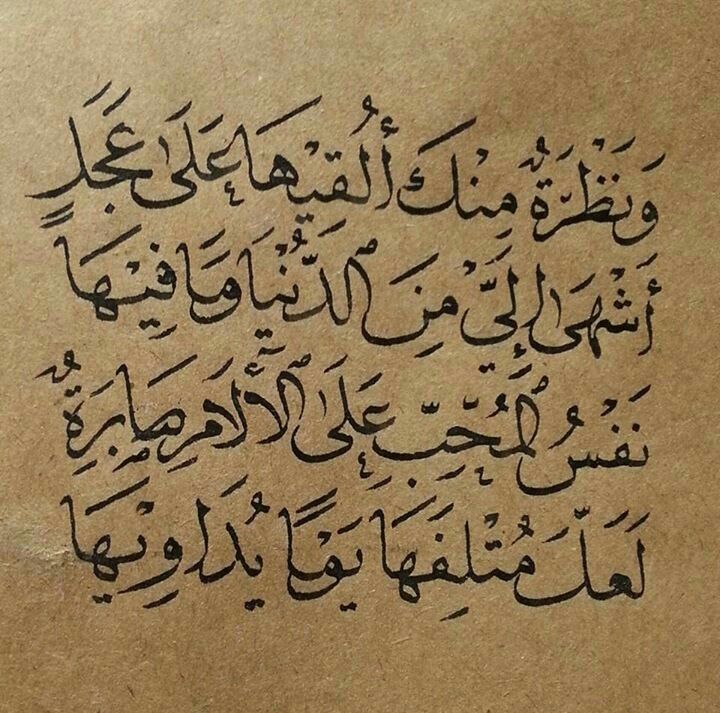 وَنَظْرَةٌ مِنْكَ أُلْقِيْهَا عَلَىٰ عَجَلٍ
أَشْهَىٰ إِلَيَّ مِنَ ٱلدُّنْيَا وَمَا فِيْهَا
نَفْسُ ٱلْمُحِبِّ عَلَىٰ ٱلْآلَامِ صَابِرَةٌ
لَعَلَّ مُتْلِفَهَا يَوْمًا يُدَاوِيْهَا